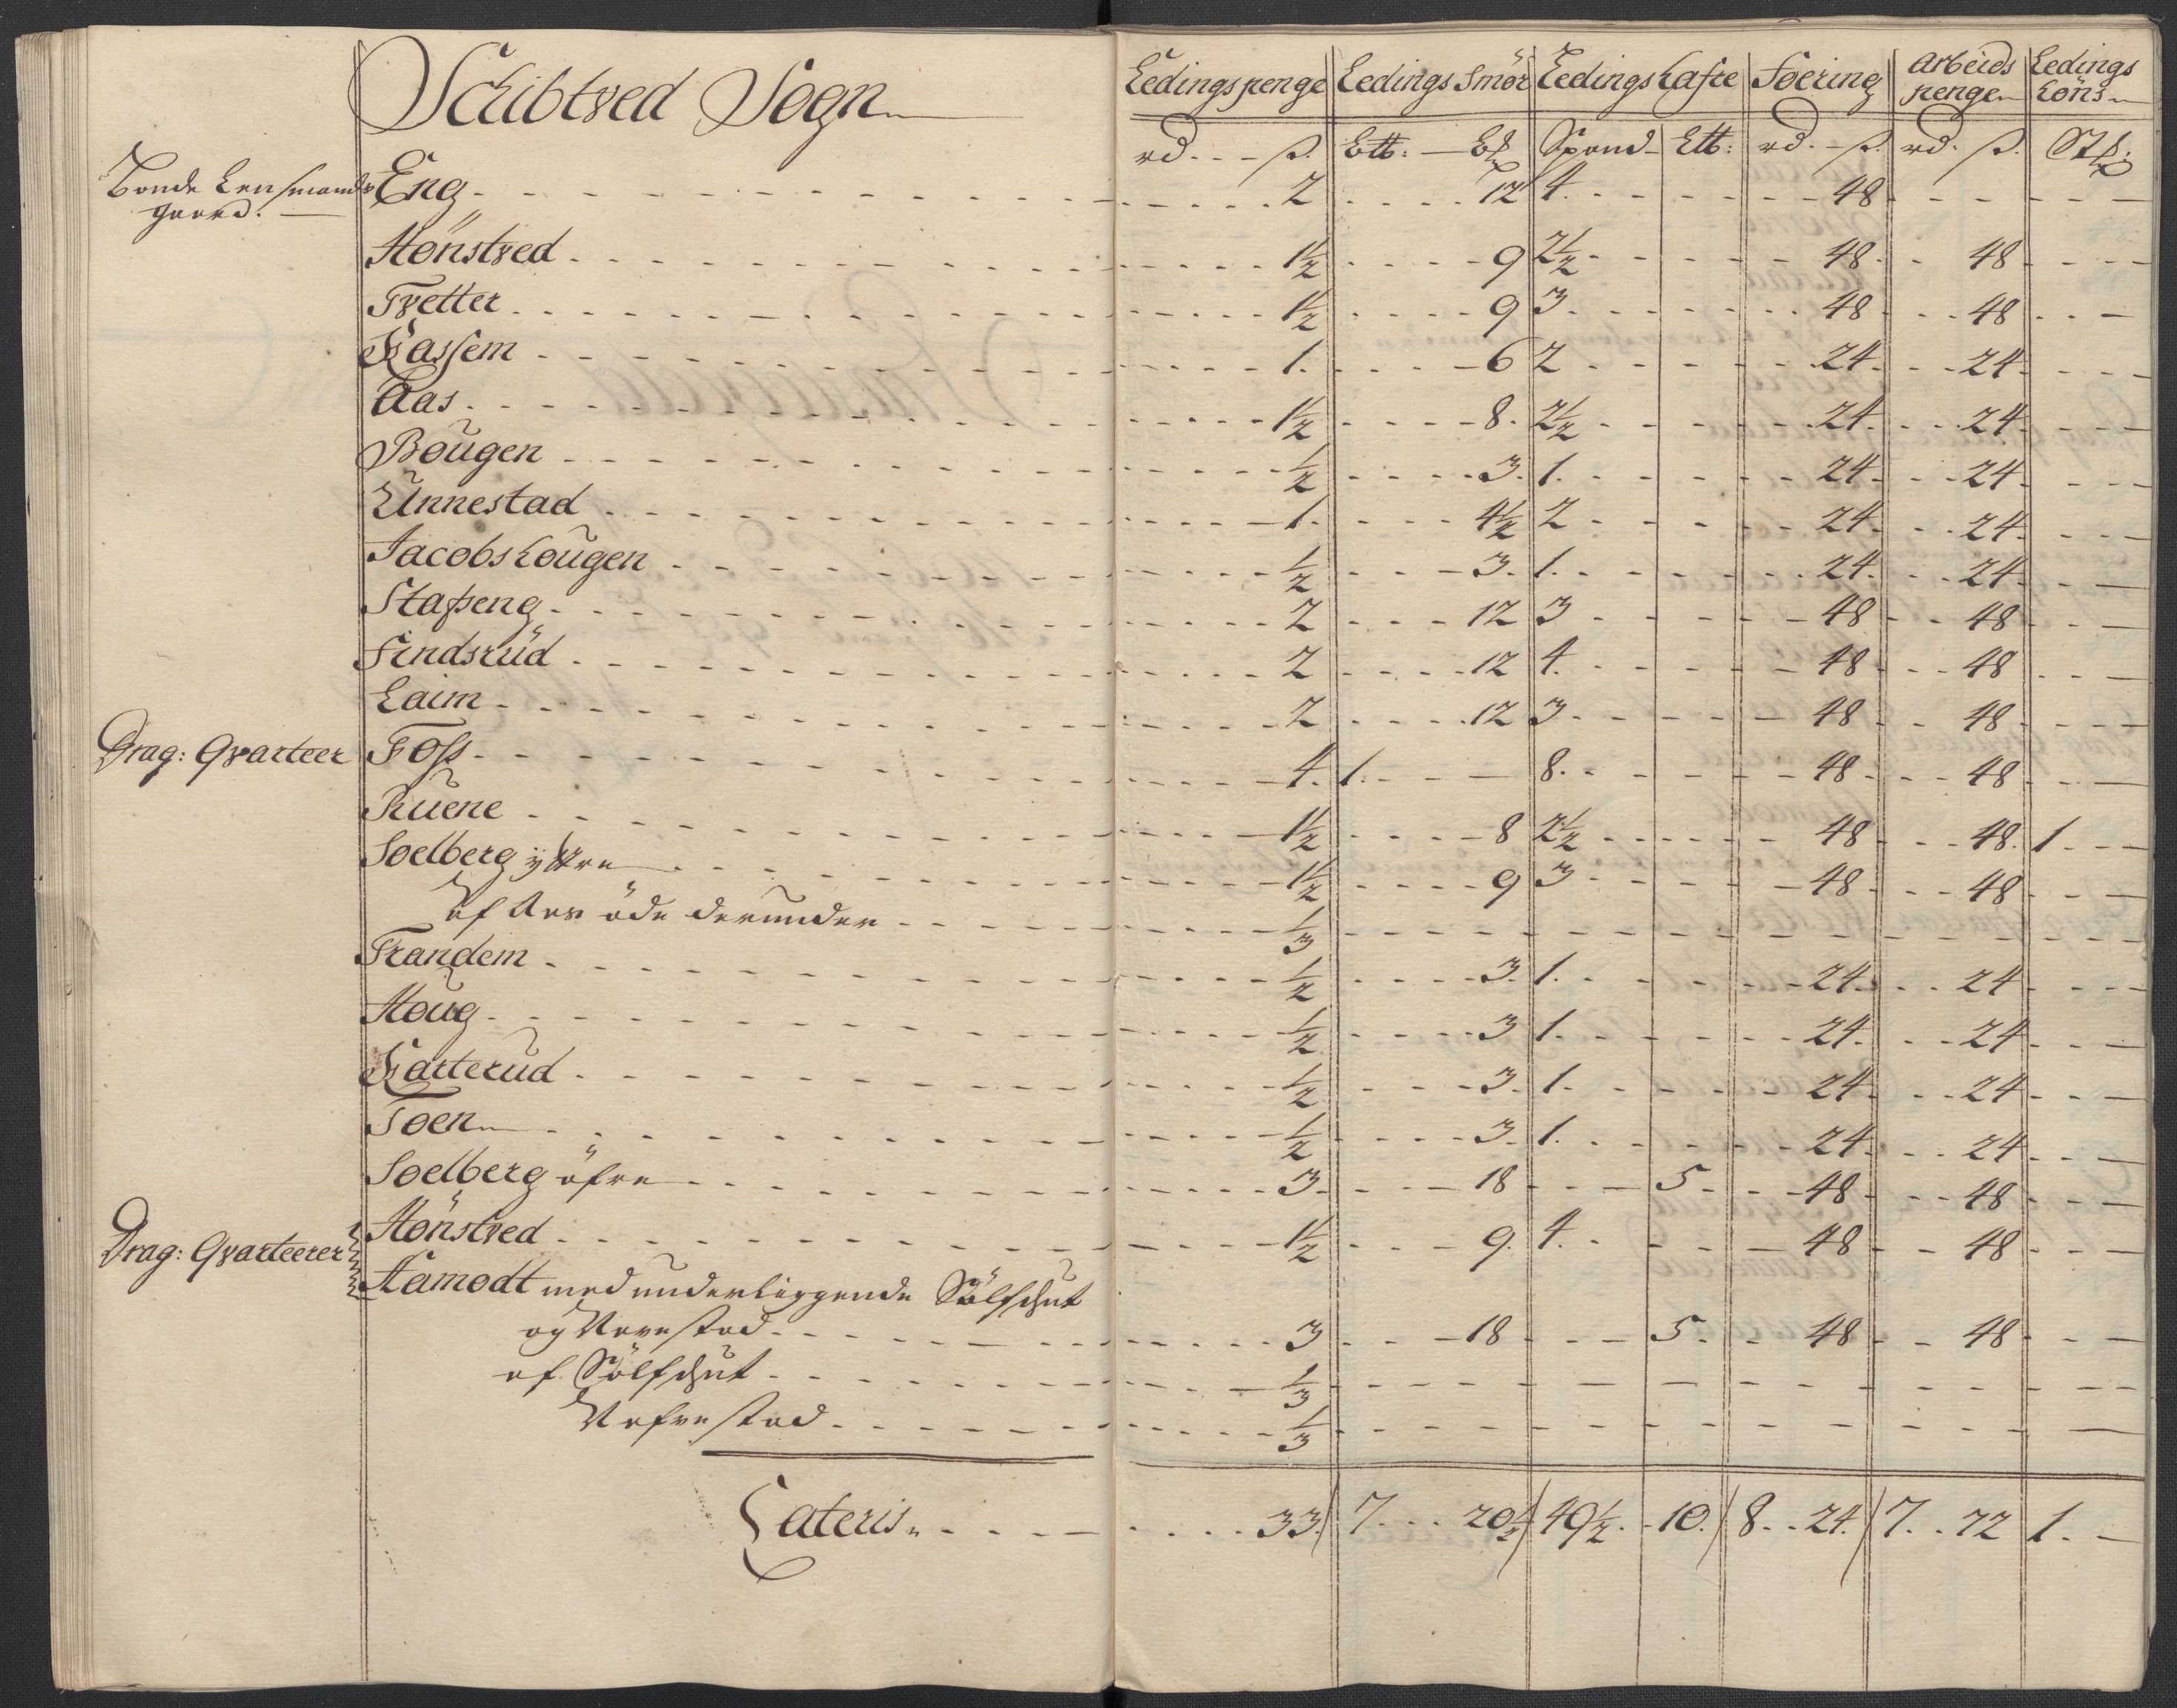 Schibtved Sogn
Ledingspenge Ledings Smör Ledings Kafre Foering Arbeids penge Ledings
rd. ß. Spand rd. ß. rd. ß.
Bonde Lensmands gaard. Eng 2 12 4. 48
Hönstved 1½ 9 2½ 48 48
Tvetter 1½ 9 3 48 48
Kassem 1. 6 2 24 24
Aas 1½ 8. 2½ 24 24
Bougen ½ 3. 1. 24 24
Unnestad 1. 4½ 2 24 24
Jacobskougen ½ 3. 1. 24 24
Stapeng 2 12 3 48 48
Findsrüd 2 12 4. 48 48
Laim 2 12 3 48 48
Drag: Qvarteer Foss 4. 1. 8. 48 48
Ruene 1½ 8 2½ 48 48. 1
Soelberg yttre 1½ 9 3 48 48
af Aas öde derunder ⅓
Trandem ½ 3. 1. 24 24
Houg ½ 3 1. 24 24
Karterud ½ 3. 1. 24 24
Toen ½ 3. 1. 24 24
Soelberg öfre 3. 18 5 48 48
Drag: Qvarteerer Hönstved 1½ 9. 4. 48 48
Hamodt med underliggende Sölfschut
og Narestad 3 18 5. 48 48
af Sölfschut ⅓
Nafrestad ⅓
Lateris 33. 7 20½ 49½ 10. 8 24. 7 72 1.